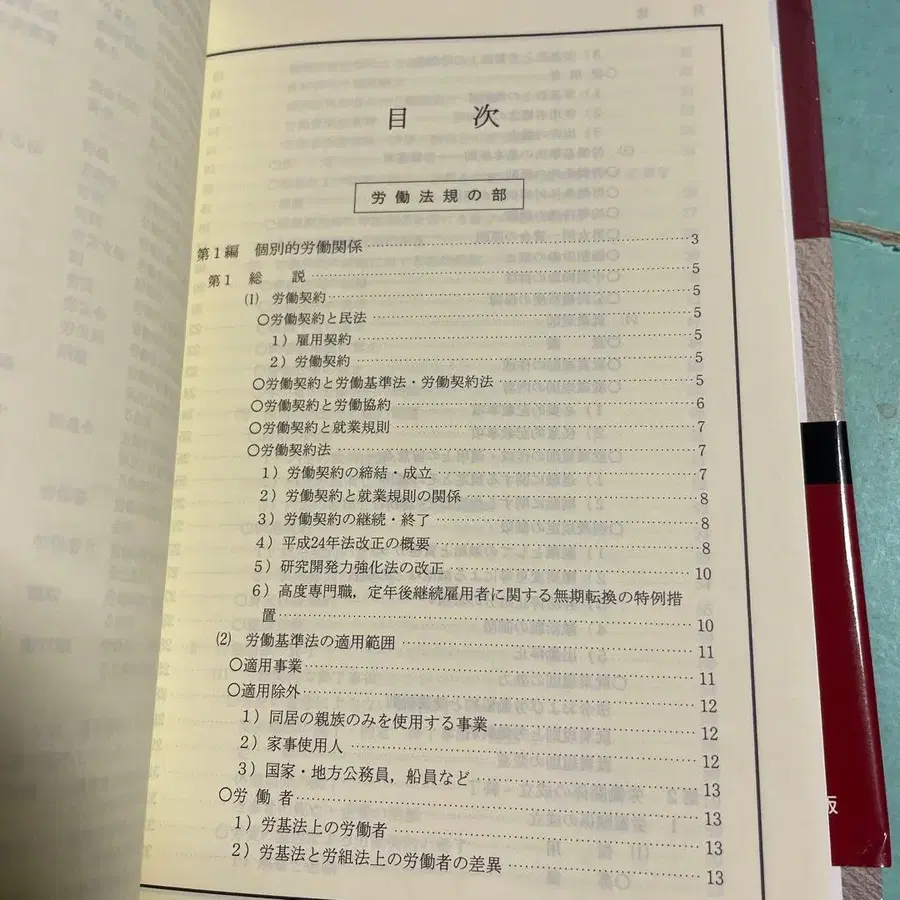 目 次
労働法規の部
第1編 個別的労働関係 3
第1 総 説 5
(1) 労働契約 5
○労働契約と民法 5
1) 雇用契約 5
2) 労働契約 5
○労働契約と労働基準法・労働契約法 5
○労働契約と労働協約 6
○労働契約と就業規則 7
○労働契約法 7
1) 労働契約の締結・成立 7
2) 労働契約と就業規則の関係 8
3) 労働契約の継続・終了 8
4) 平成24年法改正の概要 8
5) 研究開発力強化法の改正 10
6) 高度専門職,定年後継続雇用者に関する無期転換の特例措
置 10
(2) 労働基準法の適用範囲 11
○適用事業 11
○適用除外 12
1) 同居の親族のみを使用する事業 12
2) 家事使用人 12
3) 国家・地方公務員,船員など 13
○労 働 者 13
1) 労基法上の労働者 13
2) 労基法と労組法上の労働者の差異 13
版